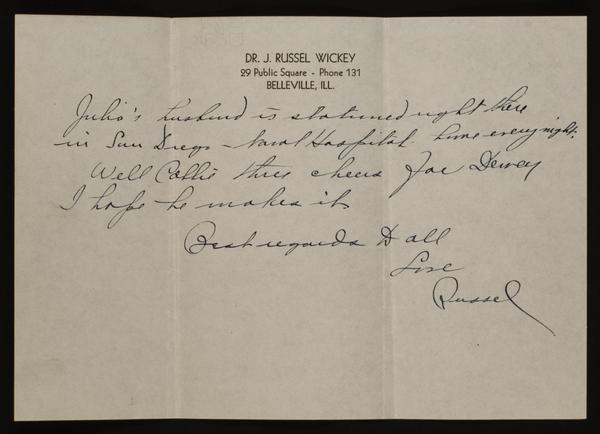 DR. J. RUSSEL WICKEY
29 Public Square - Phone 131
BELLEVILLE, ILL.
Julia's husband is stationed right there
in San Diego - Naval Hospital. home every night.
Well Callie three cheers for Dewey
I hope he makes it
Best regards to all
Love
Russel